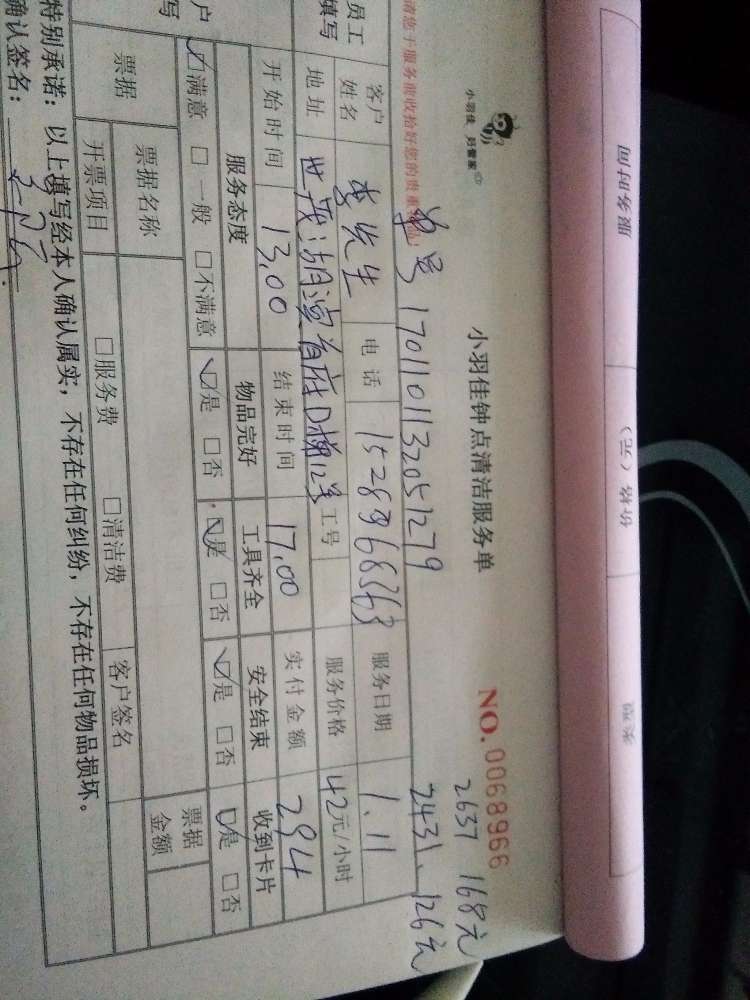 服务时间
价格（元）
票据
小羽佳 好管家
小羽佳钟点清洁服务单
NO.0068966
2637 168元
请您于服务前收拾好您的贵重物品！
单号 1701101132051279
2431. 126元
员工填写
客户姓名 李先生 电话 15289368363 服务日期 1.11
地址 世茂湖滨首府D梯12号 工号 服务价格 42元/小时
开始时间 13.00 结束时间 17.00 实付金额 294
户
写
服务态度 物品完好 工具齐全 安全结束 收到卡片
☑满意 □一般 □不满意 ☑是 □否 ☑是 □否 ☑是 □否 ☑是 □否
票据 票据名称 票据金额
开票项目 □服务费 □清洁费 客户签名
特别承诺：以上填写经本人确认属实，不存在任何纠纷，不存在任何物品损坏。
确认签名：